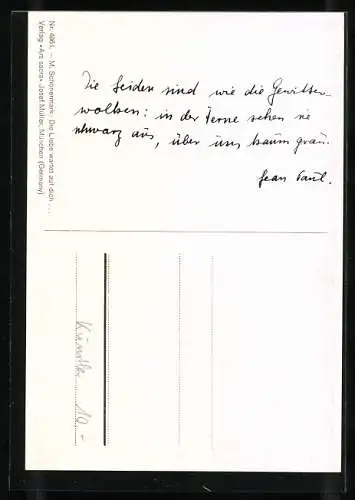 Die Leiden sind wie die Gewitter-
wolken: in der Ferne sehen sie
schwarz aus, über uns kaum grau.
Jean Paul.
Nr. 4864. – M. Schönermark: Die Liebe wartet auf dich . . .
Verlag »Ars sacra« Josef Müller, München (Germany)
Künstler 10,-